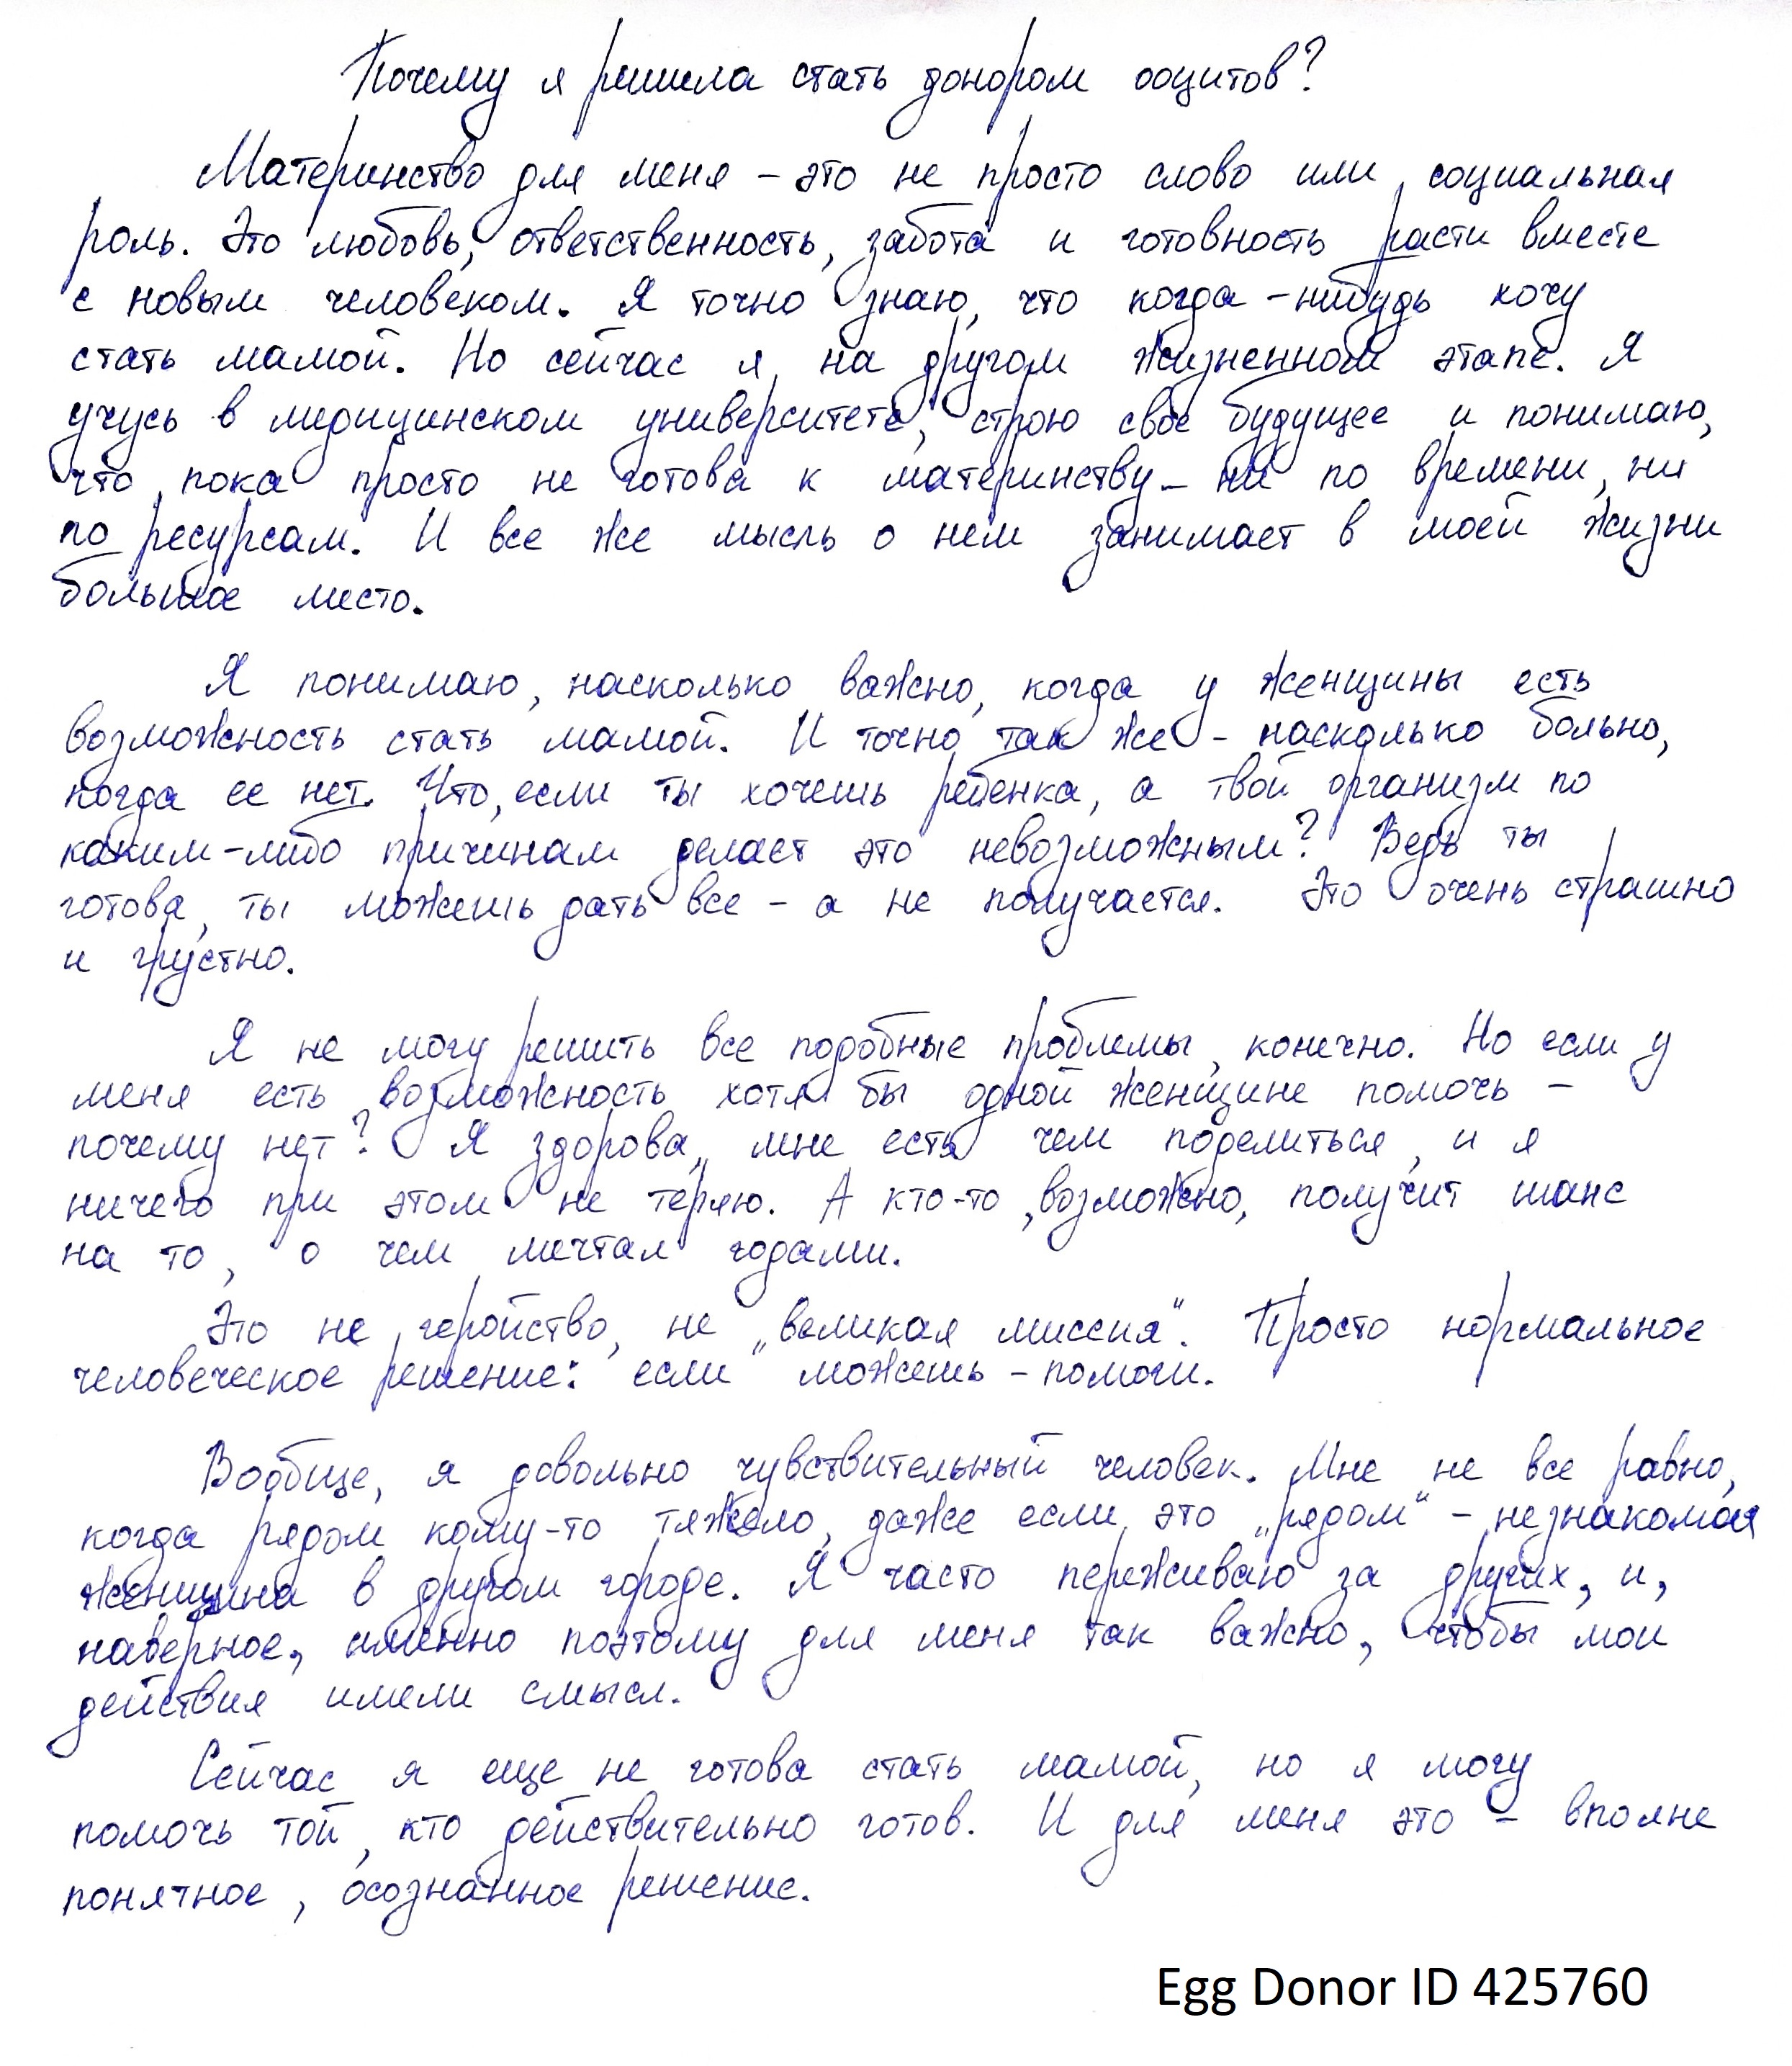 Почему я решила стать донором ооцитов?
Материнство для меня - это не просто слово или социальная
роль. Это любовь, ответственность, забота и готовность расти вместе
с новым человеком. Я точно знаю, что когда-нибудь хочу
стать мамой. Но сейчас я на другом жизненном этапе. Я
учусь в медицинском университете, строю свое будущее и понимаю,
что пока просто не готова к материнству - ни по времени, ни
по ресурсам. И все же мысль о нем занимает в моей жизни
большое место.
Я понимаю, насколько важно, когда у женщины есть
возможность стать мамой. И точно так же - насколько больно,
когда ее нет. Что, если ты хочешь ребенка, а твой организм по
каким-либо причинам делает это невозможным? Ведь ты
готова, ты можешь дать все - а не получается. Это очень страшно
и грустно.
Я не могу решить все подобные проблемы, конечно. Но если у
меня есть возможность хотя бы одной женщине помочь -
почему нет? Я здорова, мне есть чем поделиться, и я
ничего при этом не теряю. А кто-то, возможно, получит шанс
на то, о чем мечтал годами.
Это не геройство, не „великая миссия“. Просто нормальное
человеческое решение: если можешь - помоги.
Вообще, я довольно чувствительный человек. Мне не все равно,
когда рядом кому-то тяжело, даже если это „рядом“ - незнакомая
женщина в другом городе. Я часто переживаю за других, и,
наверное, именно поэтому для меня так важно, чтобы мои
действия имели смысл.
Сейчас я еще не готова стать мамой, но я могу
помочь той, кто действительно готов. И для меня это - вполне
понятное, осознанное решение.
Egg Donor ID 425760